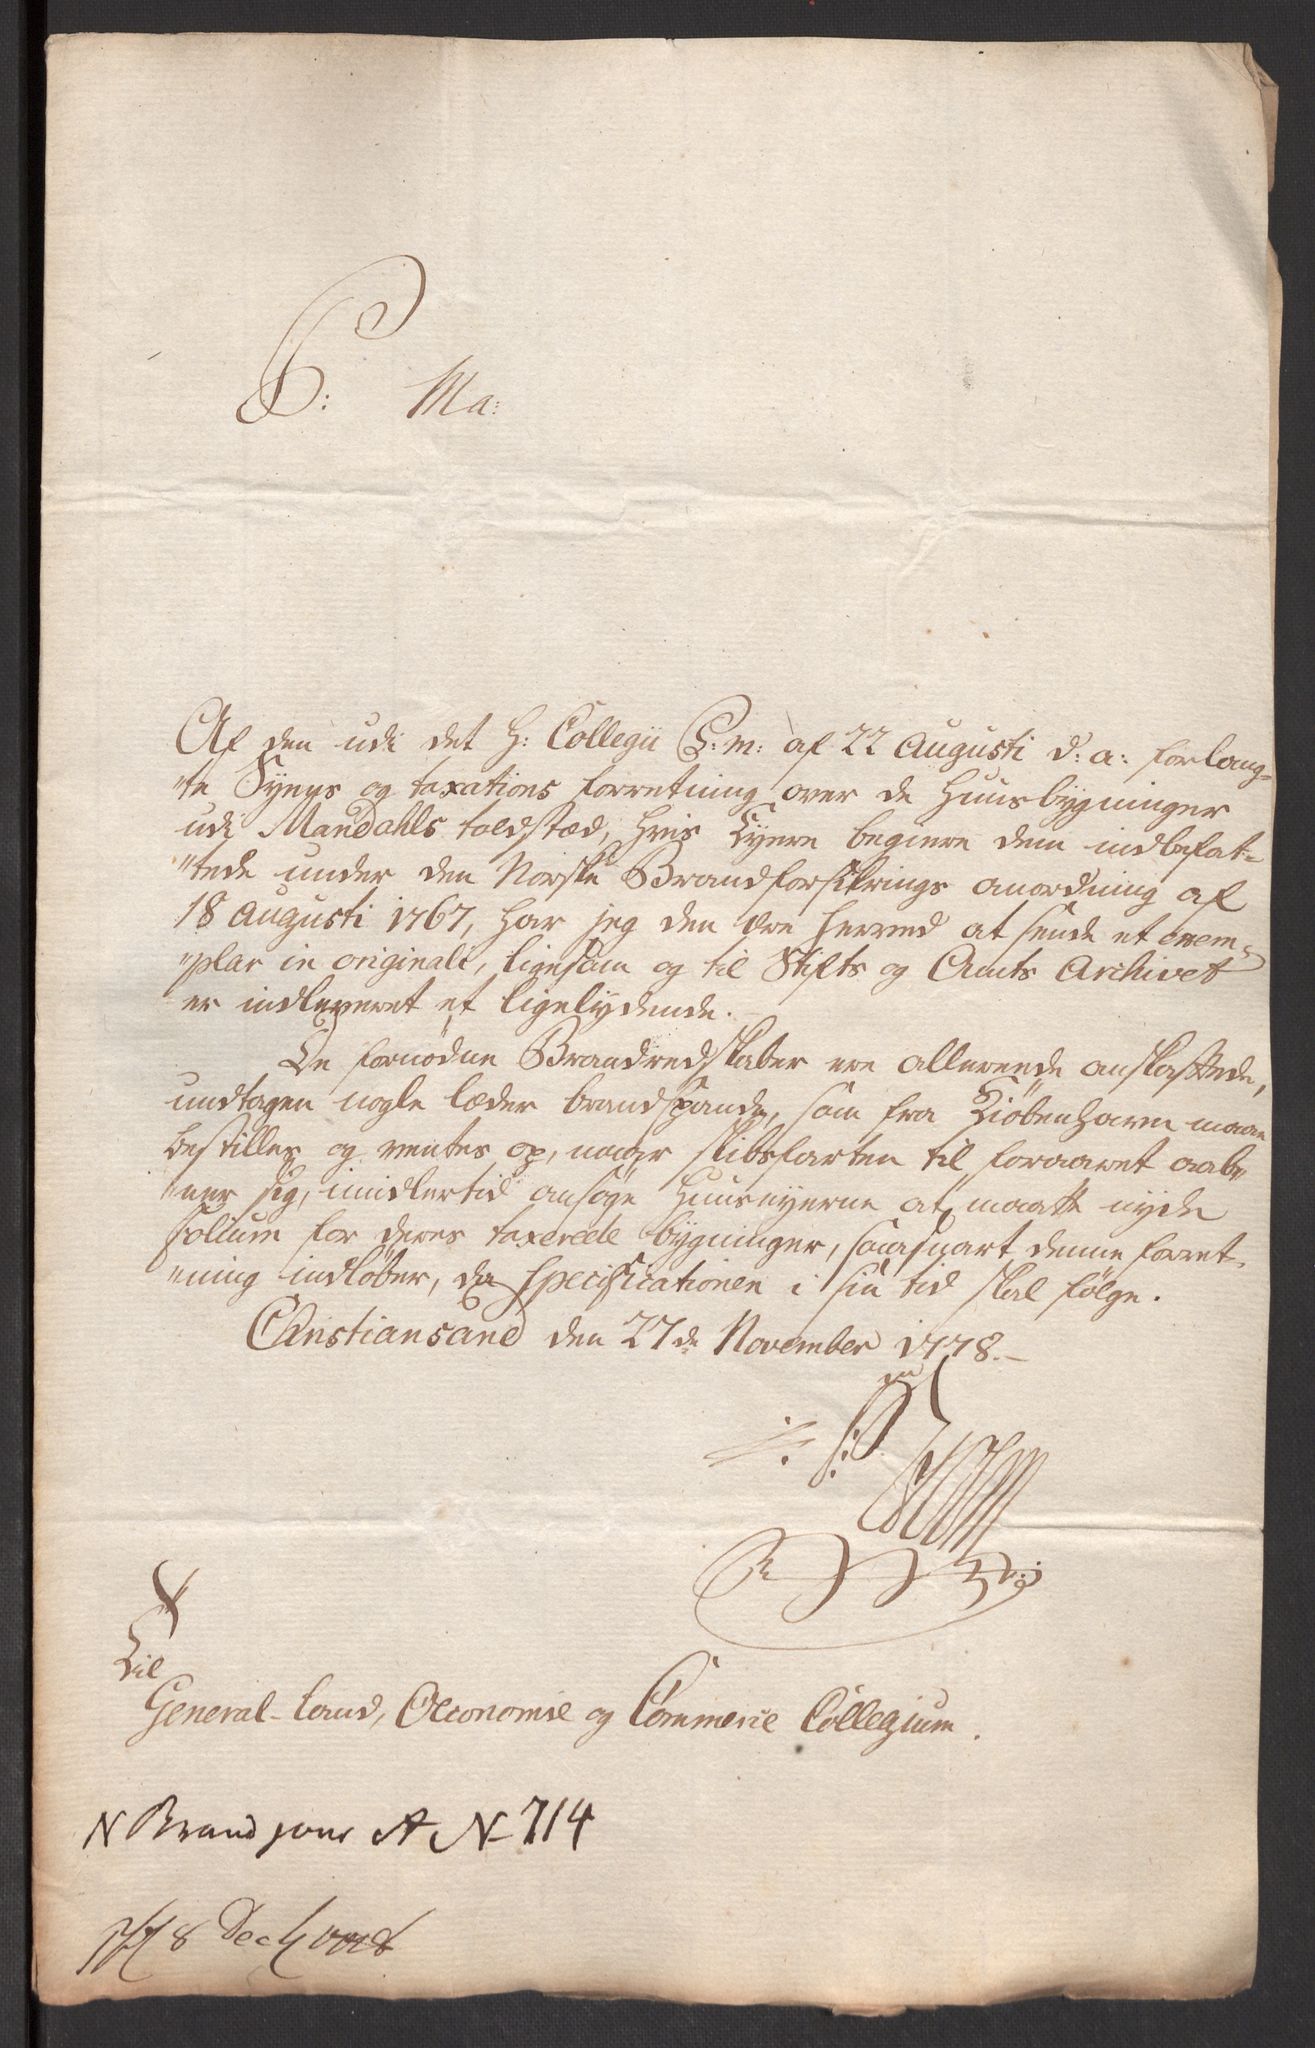 P: Ma:
Af den udi det H: Collegii P: m: af 22 Augusti d: a: forlang-
"te Syns og taxations forretning over de Huusbygninger
udi Mandahls toldstæd, hvis Eyere begiere dem indbefat-
"tede under den Norske Brandforsikrings anordning af
18 Augusti 1767, har jeg den Ære herved at sende et exem-
"plar in originali, ligesom og til Stifts og Amts Archivet
er indleveret et ligelydende.
De fornødne Brandredskaber ere allerede anskaffede,
undtagen nogle læder brandspande, som fra Kiøbenhavn maae
bestilles og ventes op, naar skibsfarten til foraaret aab-
"ner sig, imidlertid ansøge Huuseyerne at maatte nyde
folium for deres taxerede bygninger, saasnart denne forret-
"ning indløber, da specificationen i sin tid skal følge.
Christiansand den 27de November 1778.
Til
General-Land, Oeconomie og Commerce Collegium.
N Brand A N 714
8 Dec 1778